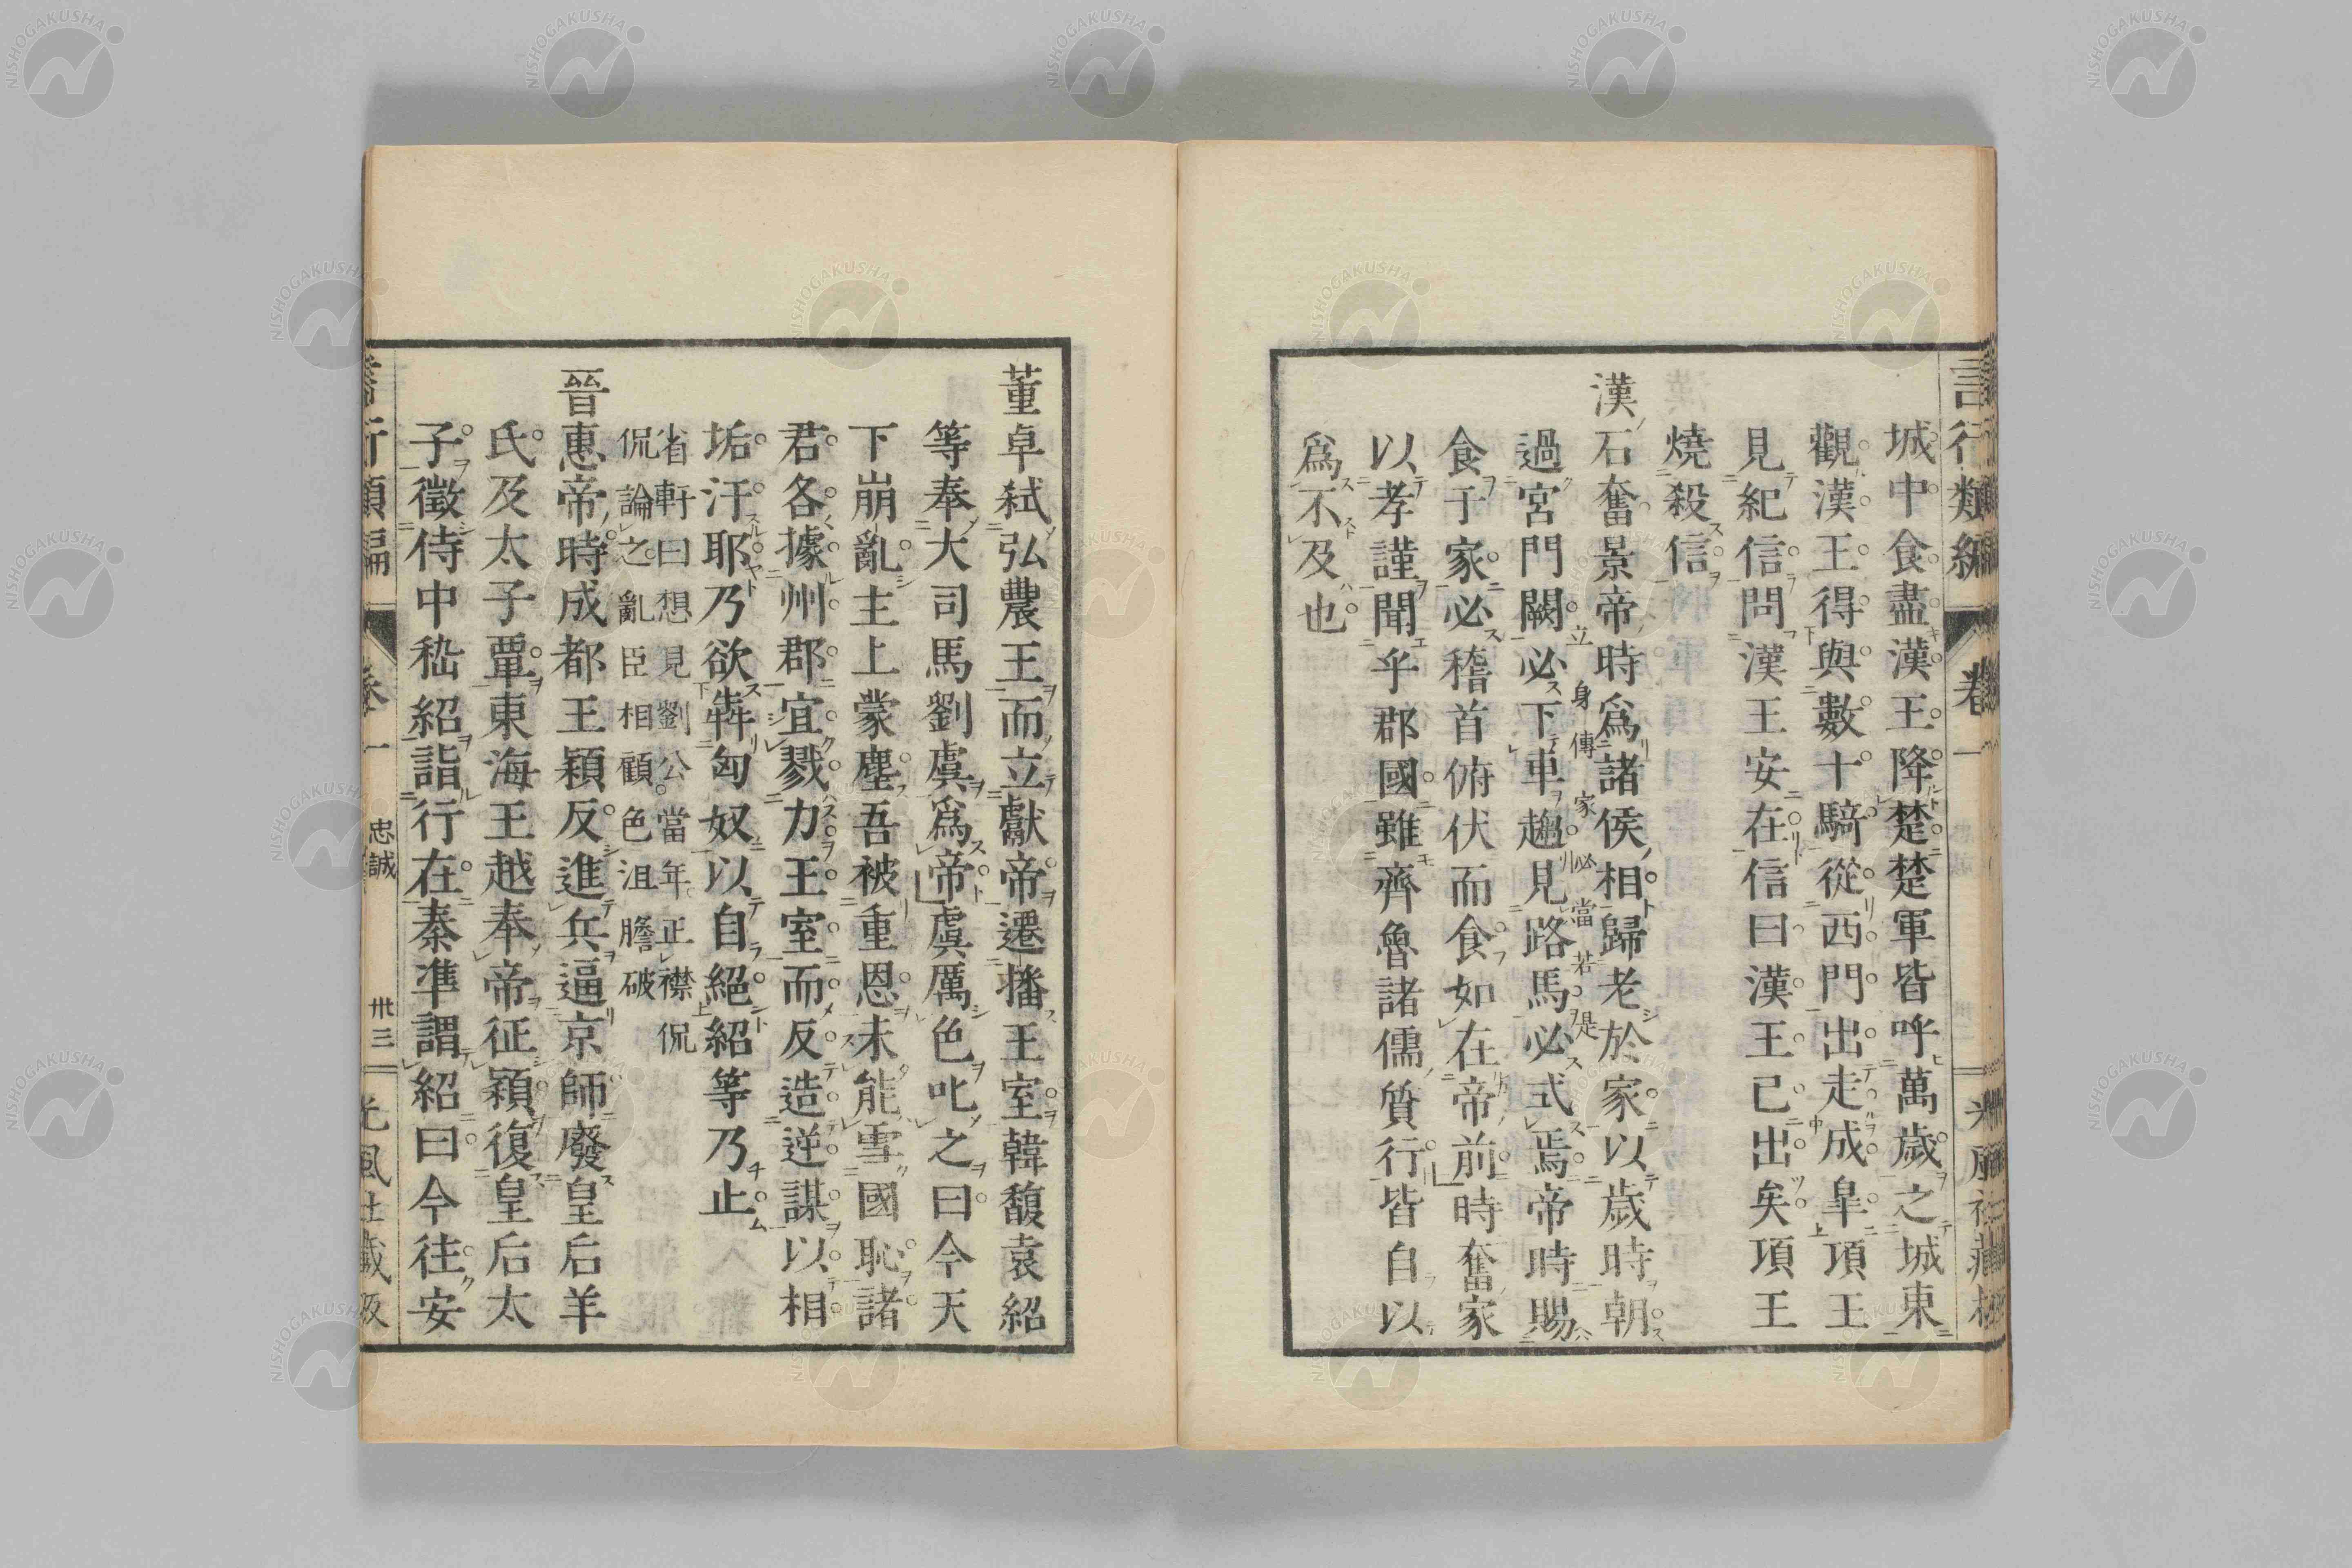 言行類編 卷一
城中食盡漢王降楚楚軍皆呼萬歲之城東
觀漢王得與數十騎從西門出走成皐項王
見紀信問漢王安在信曰漢王已出矣項王
燒殺信
漢石奮景帝時爲諸侯相歸老於家以歲時朝
立身傳家必當若是
過宮門闕必下車趨見路馬必式焉帝時賜
食于家必稽首俯伏而食如在帝前時奮家
以孝謹聞乎郡國雖齊魯諸儒質行皆自以
爲不及也
董卓弑弘農王而立獻帝遷播王室韓馥袁紹
等奉大司馬劉虞爲帝虞厲色叱之曰今天
下崩亂主上蒙塵吾被重恩未能雪國恥諸
君各據州郡宜戮力王室而反造逆謀以相
垢汙耶乃欲犇匈奴以自絕紹等乃止
省軒曰想見劉公當年正襟侃
侃論之亂臣相顧色沮膽破
晉惠帝時成都王穎反進兵逼京師廢皇后羊
氏及太子覃東海王越奉帝征穎復皇后太
子徵侍中嵇紹詣行在秦準謂紹曰今往安
言行類編 卷一 忠誠 卅三 光風社藏版